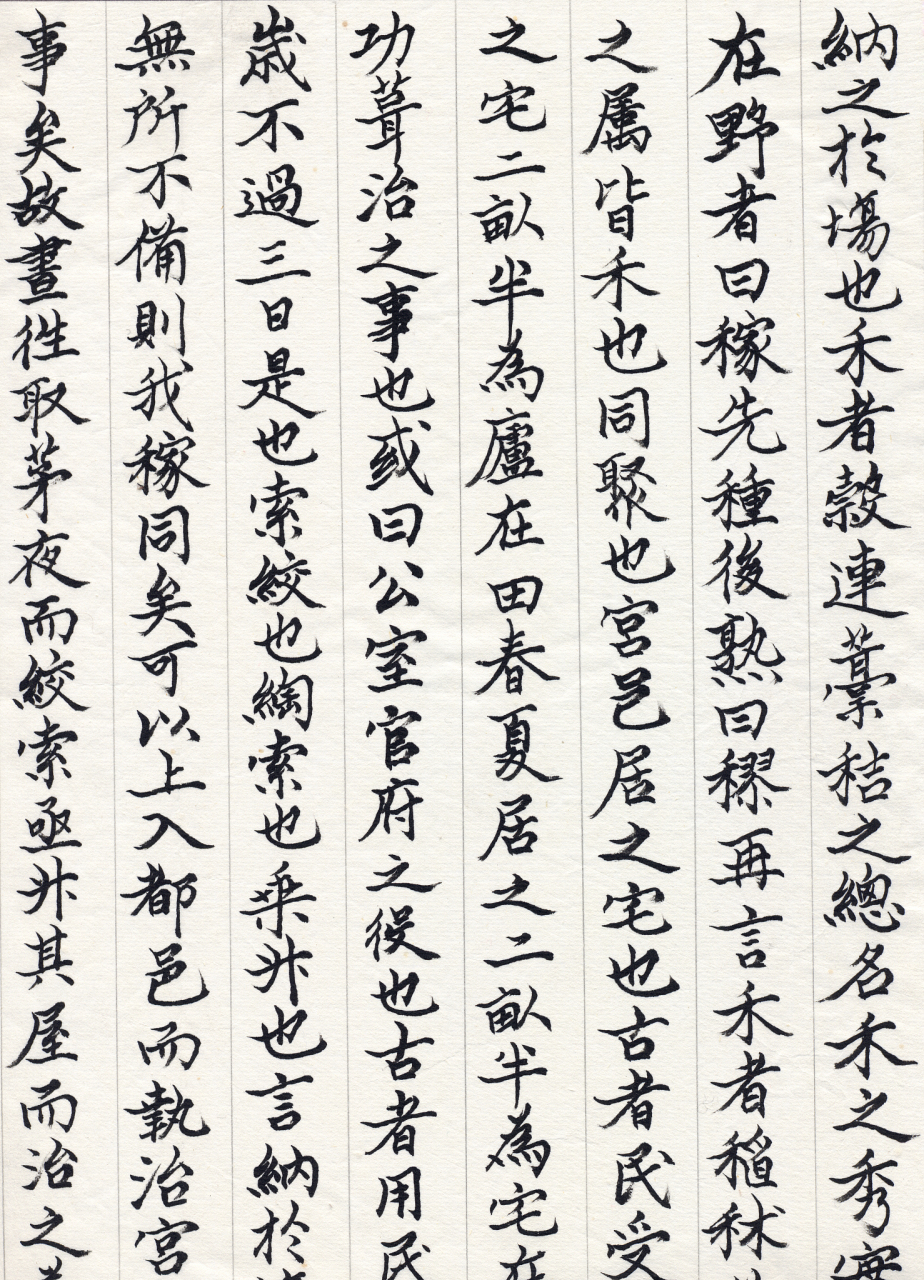 納之於場也禾者穀連藁秸之總名禾之秀實
在野者曰稼先種後熟曰穋再言禾者稻秫
之属皆禾也同聚也宮邑居之宅也古者民受
之宅二畝半為廬在田春夏居之二畝半為宅在
功葺治之事也或曰公室官府之役也古者用民
歳不過三日是也索絞也綯索也乗升也言納於
無所不備則我稼同矣可以上入都邑而執治宮
事矣故晝徃取茅夜而絞索亟升其屋而治之